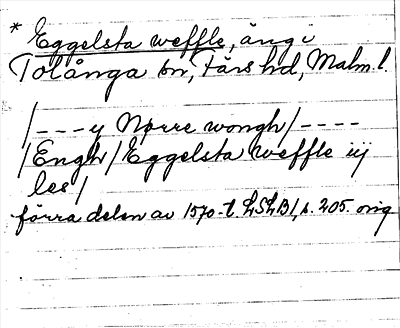 * Eggelsta weffle, äng i
Tolånga sn, Färs hd, Malm. l.
/---y Nørre wongh/----
/Engh/Eggelsta weffle iij
les/
förra delen av 1570-t. LSLB1, s. 205. orig